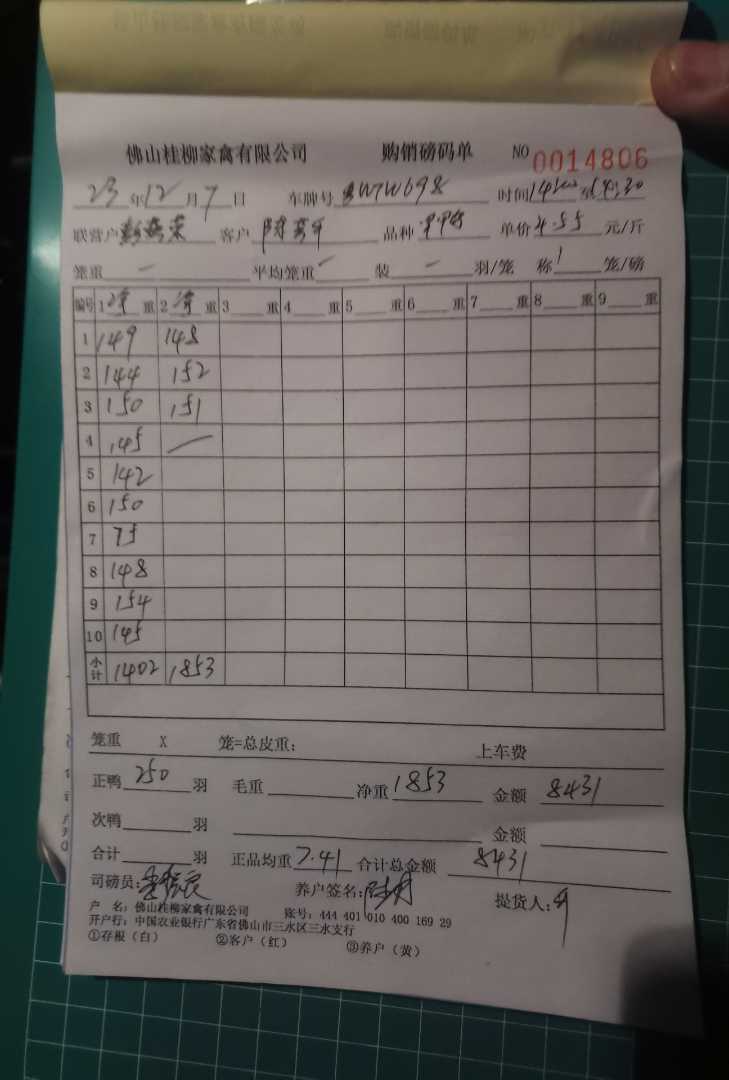 佛山桂柳家禽有限公司 购销磅码单 NO 0014806
23年12月7日 车牌号 W7W698 时间 至
联营户 荣 客户 品种 单价4.55元/斤
笼重 — 平均笼重 — 装 — 羽/笼 称1笼/磅
编号 1 净 重 2 净 重 3 重 4 重 5 重 6 重 7 重 8 重 9 重
1 149 148
2 144 152
3 150 151
4 145 —
5 142
6 150
7 75
8 148
9 154
10 145
小计 1402 1853
笼重 X 笼=总皮重: 上车费
正鸭 250 羽 毛重 净重 1853 金额 8431
次鸭 羽 金额
合计 羽 正品均重 7.41 合计总金额 8431
司磅员: 养户签名: 提货人:
户 名: 佛山桂柳家禽有限公司 账号: 444 401 010 400 169 29
开户行: 中国农业银行广东省佛山市三水区三水支行
①存根（白） ②客户（红） ③养户（黄）